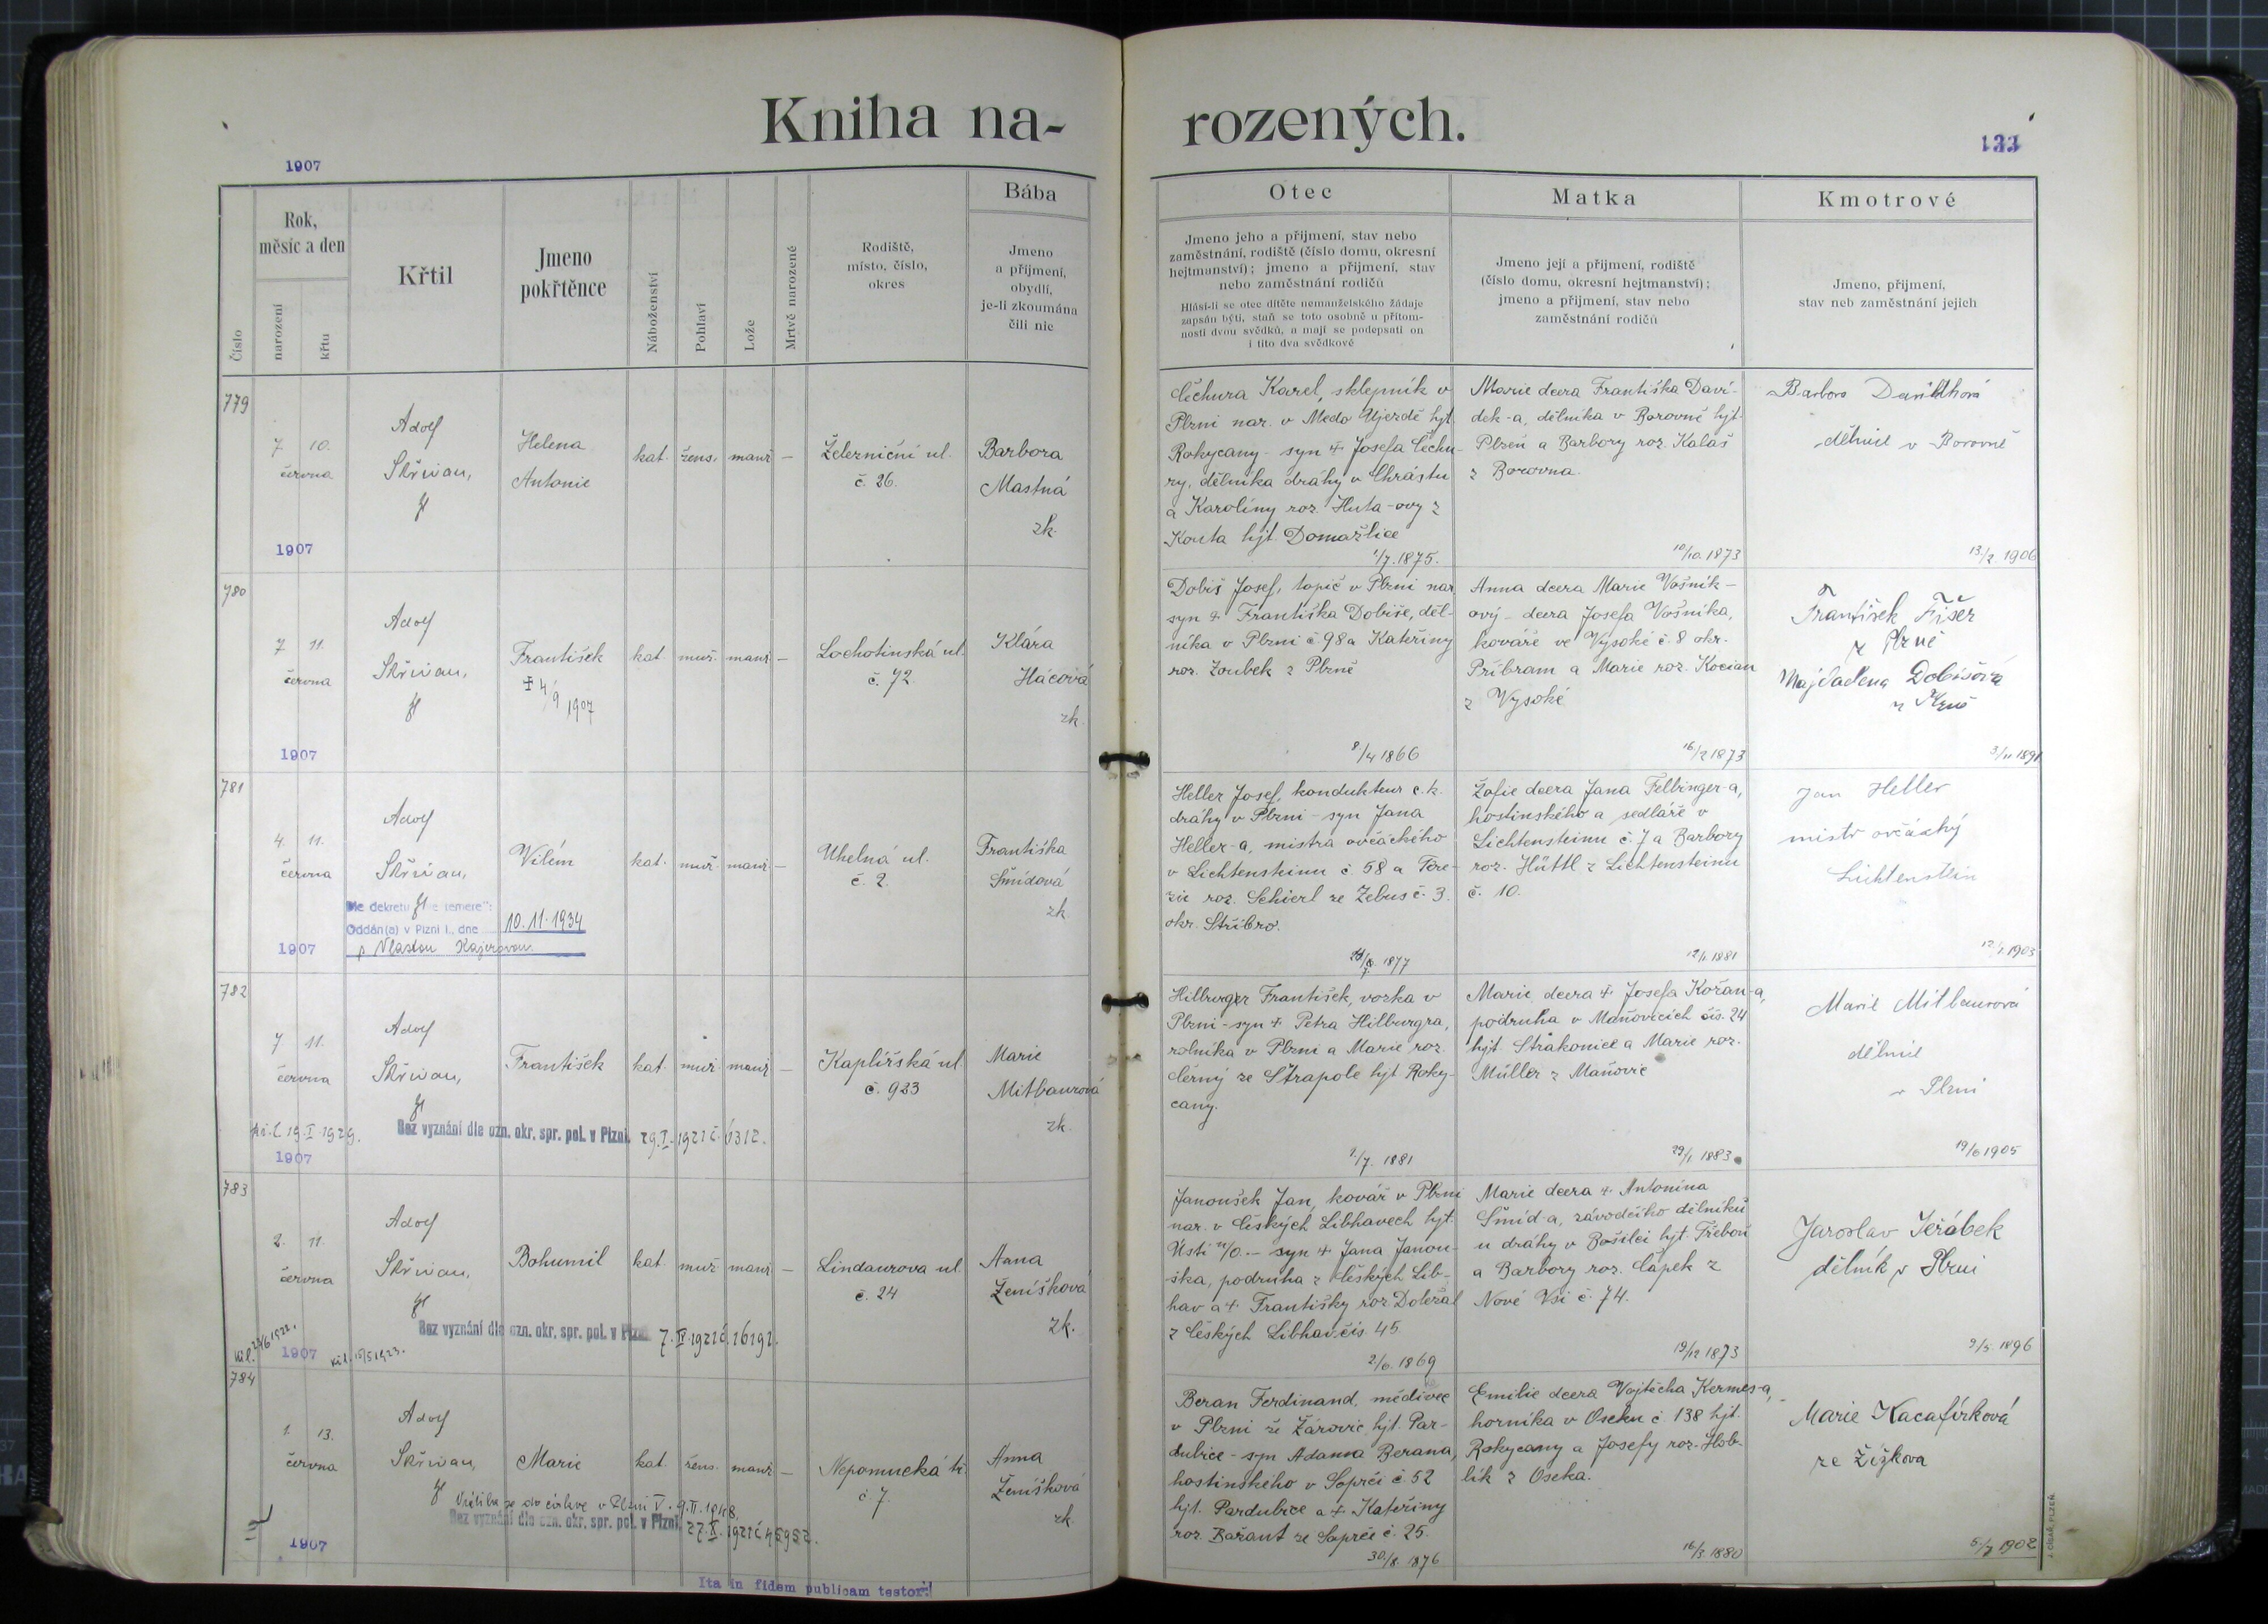 Kniha na-
rozených.
133
1907
Číslo
Rok,
měsíc a den
narození
křtu
Křtil
Jmeno
pokřtěnce
Náboženství
Pohlaví
Lože
Mrtvě narozené
Rodiště,
místo, číslo,
okres
Bába
Jmeno
a příjmení,
obydlí,
je-li zkoumána
čili nic
Otec
Jmeno jeho a příjmení, stav nebo
zaměstnání, rodiště (číslo domu, okresní
hejtmanství); jmeno a příjmení, stav
nebo zaměstnání rodičů
Hlásí-li se otec dítěte nemanželského žádaje
zapsán býti, staň se toto osobně u přítom-
nosti dvou svědků, a mají se podepsati on
i tito dva svědkové
Matka
Jmeno její a příjmení, rodiště
(číslo domu, okresní hejtmanství);
jmeno a příjmení, stav nebo
zaměstnání rodičů
Kmotrové
Jmeno, příjmení,
stav neb zaměstnání jejich
779
7. 10.
června
1907
Adolf
Skřivan,
Helena
Antonie
kat. žens. manž. —
Železniční ul.
č. 26.
Barbora
Mastná
zk.
Čechura Karel, sklepník v
Plzni nar. v Medo Újezdě hjt.
Rokycany - syn + Josefa Čechu-
ry, dělníka dráhy v Chrástu
a Karolíny roz. Huta-ovy z
Kouta hjt. Domažlice
1/7. 1875.
Marie dcera Františka Davi-
dek-a, dělníka v Borovně hjt.
Plzeň a Barbory roz. Kalaš
z Borovna.
10/10. 1873
Barbora
dělnice v Borovně
13./2. 1906
780
7. 11.
června
1907
Adolf
Skřivan,
František
+ 4/9 1907
kat. muž. manž. —
Lochotínská ul.
č. 72.
Klára
Hácová
zk.
Dobiš Josef, topič v Plzni nar.
syn + Františka Dobiše, děl-
níka v Plzni č 98 a Kateřiny
roz. Zoubek z Plzně
8./4 1866
Anna dcera Marie Vošník-
ový - dcera Josefa Vošníka,
kováře ve Vysoké č. 8 okr.
Příbram a Marie roz. Kocian
z Vysoké
16./2 1873
František Fišer
z Plzně
Majdalena Dobišová
z Plzně
3/11 1891
781
4. 11.
června
1907
Adolf
Skřivan,
Vilém
kat. muž. manž. —
Uhelná ul.
č. 2.
Františka
Šmídová
zk.
Dle dekretu "Ne temere":
Oddán(a) v Plzni I., dne 10. 11. 1934
s Vlastou Kajerovou
Heller Josef, kondukteur c. k.
dráhy v Plzni - syn Jana
Heller-a, mistra ovčáckého
v Lichtensteinu č 58 a Tere-
zie roz. Schierl ze Zebus č. 3.
okr. Stříbro.
1877
Žofie dcera Jana Felbinger-a,
hostinského a sedláře v
Lichtensteinu č. 7 a Barbory
roz. Hüttl z Lichtensteinu
č. 10.
12/1. 1881
Jan Heller
mistr ovčácký
Lichtenstein
12/1. 1903
782
7 11.
června
1907
Adolf
Skřivan,
František
kat. muž. manž. —
Kaplířská ul.
č. 923
Marie
Mitbaurová
zk.
19. I. 1929.
Bez vyznání dle ozn. okr. spr. pol. v Plzni. 29. I. 1921 č. 6312.
Hilburger František, vozka v
Plzni - syn + Petra Hilburgra,
rolníka v Plzni a Marie roz.
Černý ze Štrapole hjt. Roky-
cany.
1./7. 1881
Marie, dcera + Josefa Kořan-a,
podruha v Maňovicích čís. 24
hjt. Strakonice a Marie roz.
Müller z Maňovic
29/1. 1883
Marie Mitbaurová
dělnice
v Plzni
19/6 1905
783
2. 11.
června
1907
Adolf
Skřivan,
Bohumil
kat. muž. manž. —
Lindaurova ul.
č. 24
Anna
Ženíšková
zk.
Bez vyznání dle ozn. okr. spr. pol. v Plzni. 7. IV. 1921 č. 16192.
Janoušek Jan, kovář v Plzni
nar. v Českých Libhavech hjt.
Ústí n/O. - syn + Jana Janou-
ška, podruha z Českých Lib-
hav a + Františky roz. Doležal
z Českých Libhav čís 45
2/6. 1869
Marie dcera + Antonína
Šmíd-a, závodčího dělníků
u dráhy v Bošilci hjt. Třeboň
a Barbory roz. Čápek z
Nové Vsi č. 74.
19/12 1873
Jaroslav Jeřábek
dělník v Plzni
9/5. 1896
784
1. 13.
června
1907
Adolf
Skřivan,
Marie
kat. žens. manž. —
Nepomucká tř.
č. 7.
Anna
Ženíšková
zk.
Vrátila se do církve v Plzni V. 9. II. 1948.
Bez vyznání dle ozn. okr. spr. pol. v Plzni. 27. X. 1921 č. 45952.
Beran Ferdinand, mědivec
v Plzni ze Žárovic, hjt. Par-
dubice - syn Adama Berana,
hostinského v Soprči č 52
hjt. Pardubice a + Kateřiny
roz. Bažant ze Soprče č. 25.
30/8. 1876
Emilie dcera Vojtěcha Kermes-a,
horníka v Oseku č. 138 hjt.
Rokycany a Josefy roz. Hob-
lík z Oseka.
16/3. 1880
Marie Kacafírková
ze Žižkova
5/7 1902
Ita in fidem publicam testor:
J. CÍSAŘ, PLZEŇ.